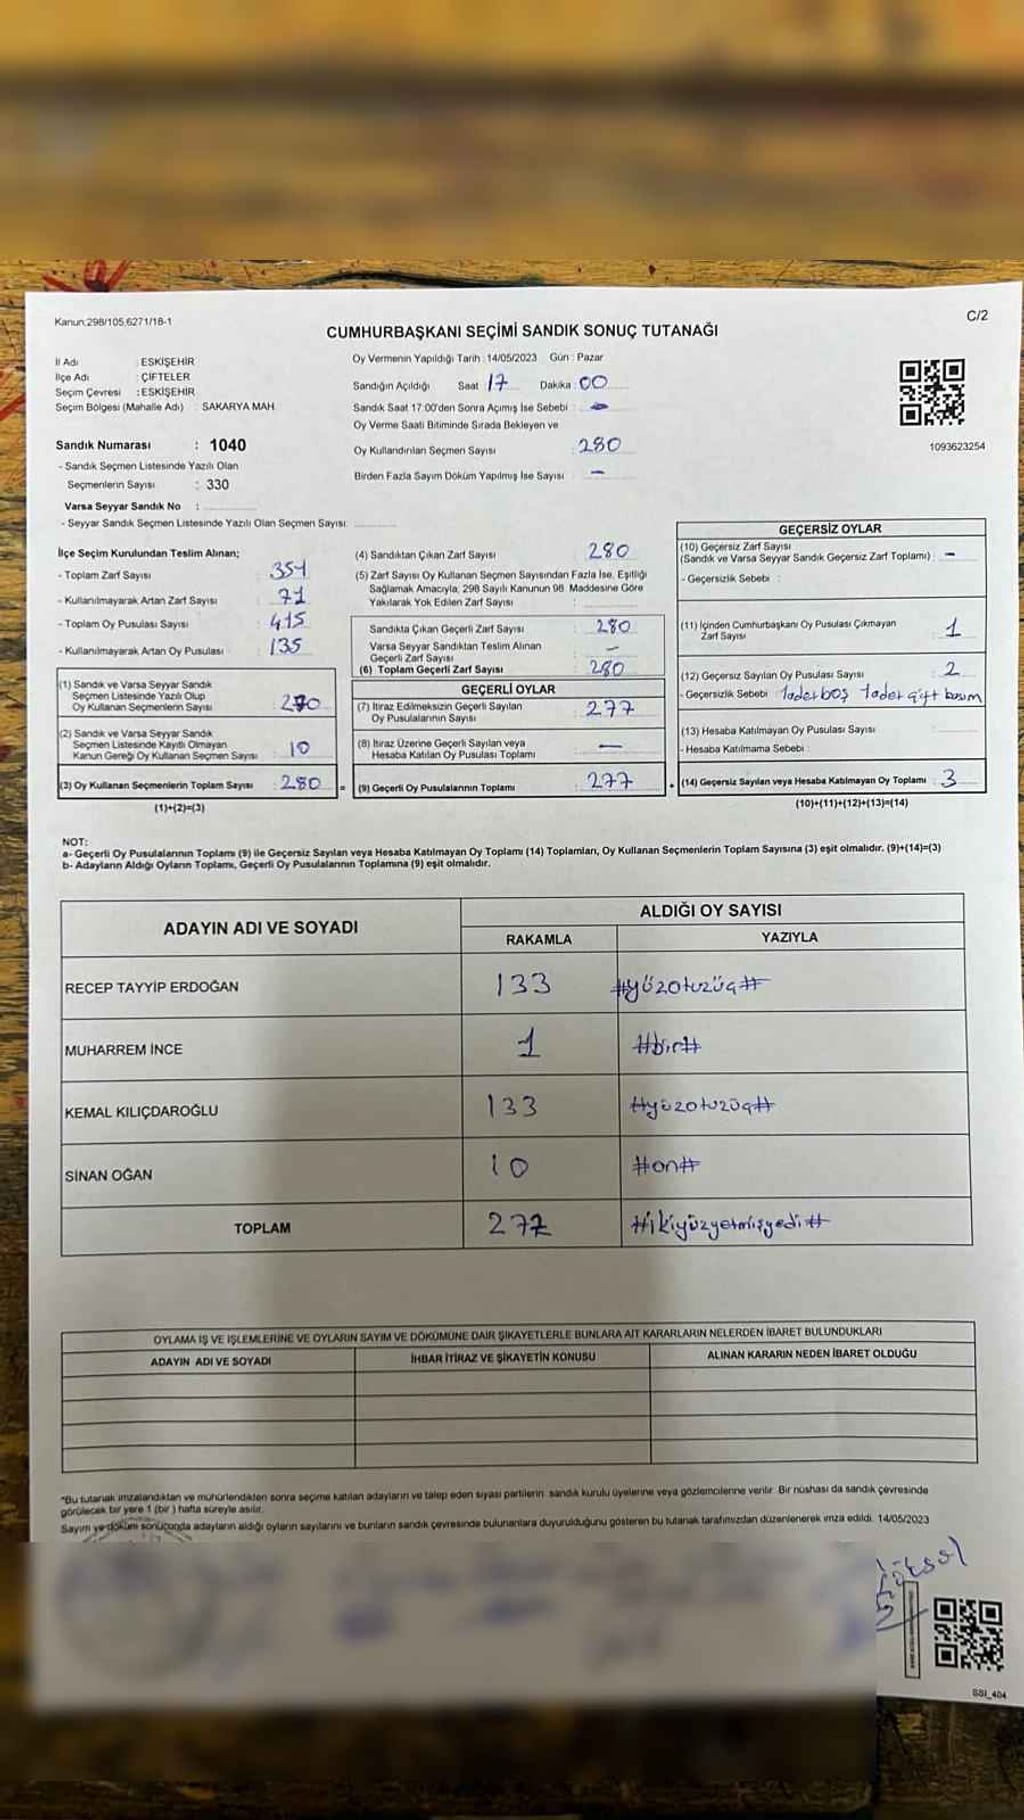 Kanun;298/105,6271/18-1
C/2
CUMHURBAŞKANI SEÇİMİ SANDIK SONUÇ TUTANAĞI
İl Adı : ESKİŞEHİR
İlçe Adı : ÇİFTELER
Seçim Çevresi : ESKİŞEHİR
Seçim Bölgesi (Mahalle Adı) : SAKARYA MAH.
Sandık Numarası : 1040
- Sandık Seçmen Listesinde Yazılı Olan
Seçmenlerin Sayısı : 330
Varsa Seyyar Sandık No :
- Seyyar Sandık Seçmen Listesinde Yazılı Olan Seçmen Sayısı:
Oy Vermenin Yapıldığı Tarih : 14/05/2023 Gün : Pazar
Sandığın Açıldığı Saat : 17 Dakika : 00
Sandık Saat 17:00'den Sonra Açımış İse Sebebi : -
Oy Verme Saati Bitiminde Sırada Bekleyen ve
Oy Kullandırılan Seçmen Sayısı : 280
Birden Fazla Sayım Döküm Yapılmış İse Sayısı : -
1093623254
İlçe Seçim Kurulundan Teslim Alınan;
- Toplam Zarf Sayısı : 351
- Kullanılmayarak Artan Zarf Sayısı : 71
- Toplam Oy Pusulası Sayısı : 415
- Kullanılmayarak Artan Oy Pusulası : 135
(1) Sandık ve Varsa Seyyar Sandık
Seçmen Listesinde Yazılı Olup
Oy Kullanan Seçmenlerin Sayısı : 270
(2) Sandık ve Varsa Seyyar Sandık
Seçmen Listesinde Kayıtlı Olmayan
Kanun Gereği Oy Kullanan Seçmen Sayısı : 10
(3) Oy Kullanan Seçmenlerin Toplam Sayısı : 280
(1)+(2)=(3)
(4) Sandıktan Çıkan Zarf Sayısı : 280
(5) Zarf Sayısı Oy Kullanan Seçmen Sayısından Fazla İse, Eşitliği
Sağlamak Amacıyla; 298 Sayılı Kanunun 98. Maddesine Göre
Yakılarak Yok Edilen Zarf Sayısı :
Sandıkta Çıkan Geçerli Zarf Sayısı : 280
Varsa Seyyar Sandıktan Teslim Alınan
Geçerli Zarf Sayısı : -
(6) Toplam Geçerli Zarf Sayısı : 280
GEÇERLİ OYLAR
(7) İtiraz Edilmeksizin Geçerli Sayılan
Oy Pusulalarının Sayısı : 277
(8) İtiraz Üzerine Geçerli Sayılan veya
Hesaba Katılan Oy Pusulası Toplamı : -
= (9) Geçerli Oy Pusulalarının Toplamı : 277
GEÇERSİZ OYLAR
(10) Geçersiz Zarf Sayısı
(Sandık ve Varsa Seyyar Sandık Geçersiz Zarf Toplamı) : -
- Geçersizlik Sebebi :
(11) İçinden Cumhurbaşkanı Oy Pusulası Çıkmayan
Zarf Sayısı : 1
(12) Geçersiz Sayılan Oy Pusulası Sayısı : 2
- Geçersizlik Sebebi 1adet boş 1adet çift basım
(13) Hesaba Katılmayan Oy Pusulası Sayısı :
- Hesaba Katılmama Sebebi :
+ (14) Geçersiz Sayılan veya Hesaba Katılmayan Oy Toplamı : 3
(10)+(11)+(12)+(13)=(14)
NOT:
a- Geçerli Oy Pusulalarının Toplamı (9) ile Geçersiz Sayılan veya Hesaba Katılmayan Oy Toplamı (14) Toplamları, Oy Kullanan Seçmenlerin Toplam Sayısına (3) eşit olmalıdır. (9)+(14)=(3)
b- Adayların Aldığı Oyların Toplamı, Geçerli Oy Pusulalarının Toplamına (9) eşit olmalıdır.
ADAYIN ADI VE SOYADI
ALDIĞI OY SAYISI
RAKAMLA YAZIYLA
RECEP TAYYİP ERDOĞAN 133 #yüzotuzüç#
MUHARREM İNCE 1 #bir#
KEMAL KILIÇDAROĞLU 133 #yüzotuzüç#
SİNAN OĞAN 10 #on#
TOPLAM 277 #ikiyüzyetmişyedi#
OYLAMA İŞ VE İŞLEMLERİNE VE OYLARIN SAYIM VE DÖKÜMÜNE DAİR ŞİKAYETLERLE BUNLARA AİT KARARLARIN NELERDEN İBARET BULUNDUKLARI
ADAYIN ADI VE SOYADI İHBAR İTİRAZ VE ŞİKAYETİN KONUSU ALINAN KARARIN NEDEN İBARET OLDUĞU
*Bu tutanak imzalandıktan ve mühürlendikten sonra seçime katılan adayların ve talep eden siyasi partilerin sandık kurulu üyelerine veya gözlemcilerine verilir. Bir nüshası da sandık çevresinde
görülecek bir yere 1 (bir) hafta süreyle asılır.
Sayım ve döküm sonuconda adayların aldığı oyların sayılarını ve bunların sandık çevresinde bulunanlara duyurulduğunu gösteren bu tutanak tarafımızdan düzenlenerek imza edildi. 14/05/2023
SSI_404